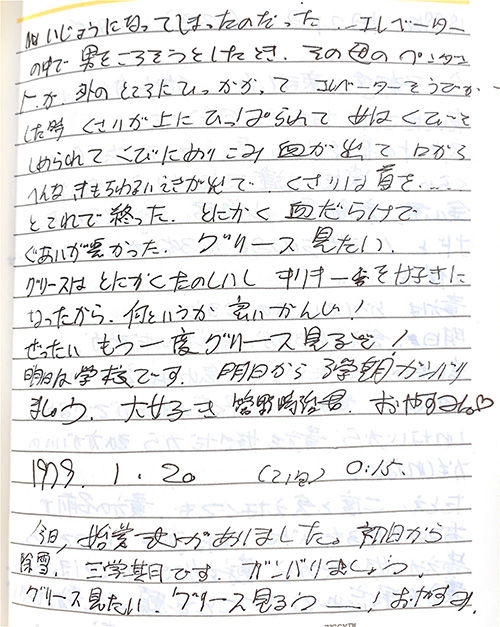 いじょうになってしまったのだった....エレベーター
の中で男をころそうとしたとき、その母のペンダン
ト、が、外のところにひっかかって エレベーターそうじゅう
した時 くさりが上にひっぱられて 女はくびを
しめられて くびにめりこみ 血が出て 口から
へんな きもちわるいえきが出て、くさりは首を....
とそれで終った。とにかく 血だらけで
ぐあいが悪かった。グリース 見たい。
グリースは とにかくたのしいし 大好きに
なったから。何というか 良いかんじ!
ぜったい もう一度グリース見るぞ!
明日は学校です。明日から 3学期 ガンバリ
ましょう。大好き 君。おやすみ♡
1979. 1. 20 (21日) 0:15.
今日、始業式がありました。初日から
除雪。三学期です。ガンバりましょう。
グリース見たい。グリース見るう―!おやすみ